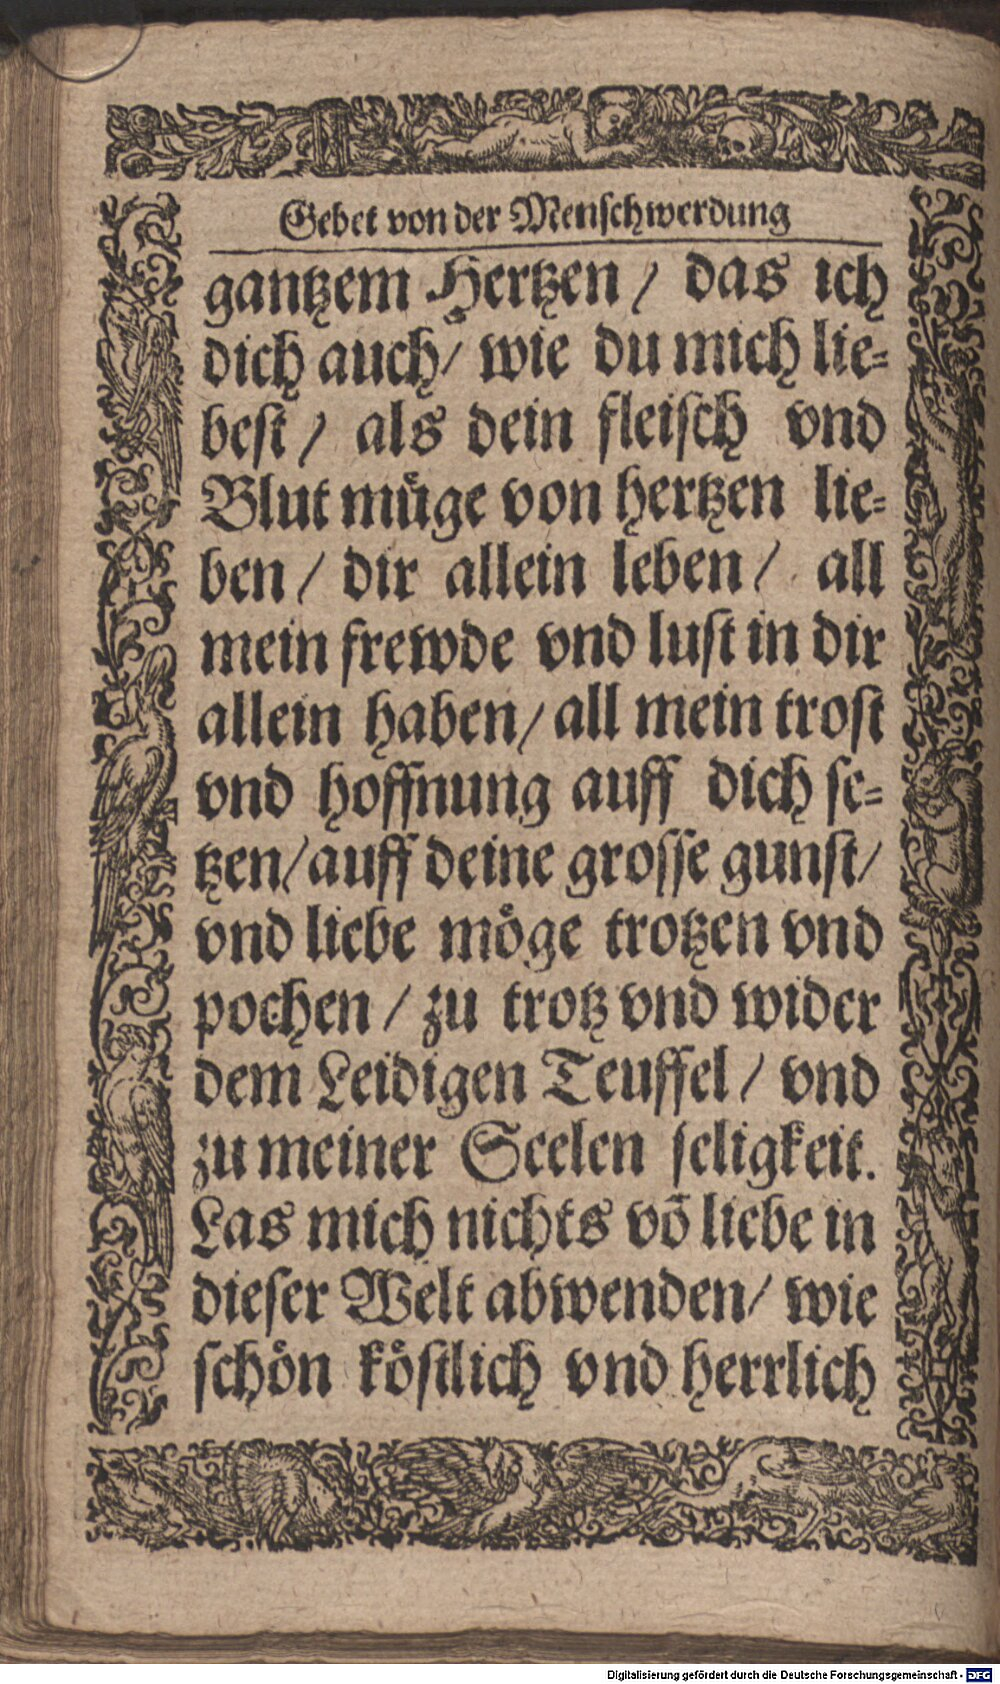 Gebet von der Menschwerdung
gantzem Hertzen / das ich
dich auch / wie du mich lie-
best / als dein fleisch vnd
Blut müge von hertzen lie-
ben / dir allein leben / all
mein frewde vnd lust in dir
allein haben / all mein trost
vnd hoffnung auff dich se-
tzen / auff deine grosse gunst /
vnd liebe möge trotzen vnd
pochen / zu trotz vnd wider
dem Leidigen Teuffel / vnd
zu meiner Seelen seligkeit.
Las mich nichts võ liebe in
dieser Welt abwenden / wie
schön köstlich vnd herrlich
Digitalisierung gefördert durch die Deutsche Forschungsgemeinschaft - DFG